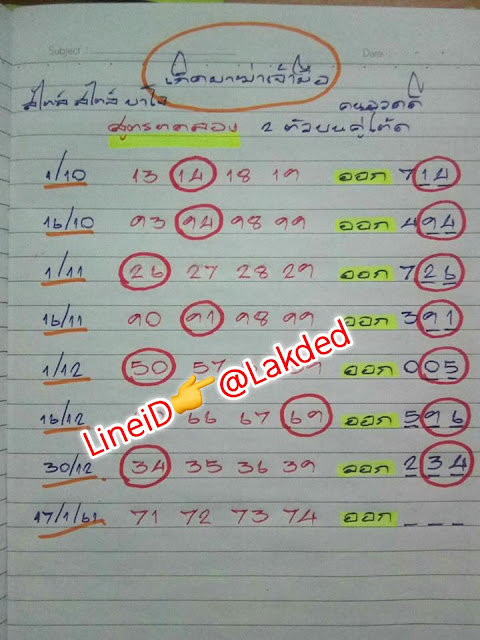 Subject Date
เกิดมาฆ่าเจ้ามือ
สไตล์ สไตล์ บาใจ คนอวดดี
สูตรทดลอง 2 ตัวบนคู่โต๊ด
1/10 13 14 18 19 ออก 714
16/10 93 94 98 99 ออก 494
1/11 26 27 28 29 ออก 726
16/11 90 91 98 99 ออก 391
1/12 50 57 ออก 005
LineiD👉@Lakded
16/12 66 67 69 ออก 596
30/12 34 35 36 39 ออก 234
17/1/61 71 72 73 74 ออก _ _ _